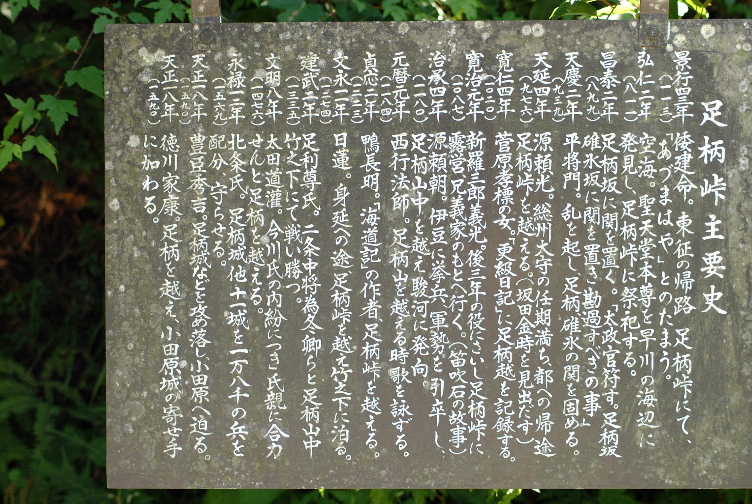 足柄峠主要史
景行四三年
(一一三)
倭建命。東征の帰路、足柄峠にて、
「あづまはや」とのたまう。
弘仁二年
(八一一)
空海。聖天堂本尊を早川の海辺に
発見し、足柄峠に祭祀する。
昌泰二年
(八九九)
足柄坂に関を置く。「太政官符す。足柄坂
碓氷坂に関を置き、勘過すべきの事」
天慶二年
(九三九)
平将門。乱を起し、足柄碓氷の関を固める。
天延四年
(九七六)
源頼光。総州太守の任期満ち、都への帰途
足柄峠を越える。(坂田金時を見出だす)
寛仁四年
(一〇二〇)
菅原孝標の女。「更級日記」に足柄越を記録する。
寛治元年
(一〇八七)
新羅三郎義光。後三年の役にいし足柄峠に
露営、兄義家のもとへ行く。(笛吹石の故事)
治承四年
(一一八〇)
源頼朝。伊豆に挙兵、軍勢を引率し、
足柄山中を越え駿河に発向。
元暦元年
(一一八四)
西行法師。足柄山を越える時歌を詠ずる。
貞応二年
(一二二三)
鴨長明。「海道記」の作者、足柄峠を越える。
文永十一年
(一二七四)
日蓮。身延への途、足柄峠を越え竹之下に泊る。
建武二年
(一三三五)
足利尊氏。二条中将為冬卿らと足柄山中
竹之下にて戦い勝つ。
文明八年
(一四七六)
太田道灌。今川氏の内紛につき、氏親に合力
せんと足柄を越える。
永禄十二年
(一五六九)
北条氏。足柄城他十一城を一万八千の兵を
配分、守らせる。
天正十八年
(一五九〇)
豊臣秀吉。足柄城などを攻め落し小田原へ迫る。
天正十八年
(一五九〇)
徳川家康。足柄を越え、小田原城の寄せ手
に加わる。